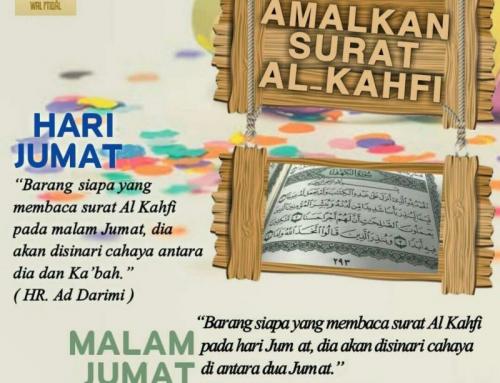 WAL I'TIDAL
AMALKAN
SURAT
AL-KAHFI
HARI
JUMAT
“Barang siapa yang
membaca surat Al Kahfi
pada malam Jumat, dia
akan disinari cahaya antara
dia dan Ka’bah.”
( HR. Ad Darimi )
٢٩٣
MALAM
JUMAT
“Barang siapa yang membaca surat Al Kahfi
pada hari Jum at, dia akan disinari cahaya
di antara dua Jumat.”